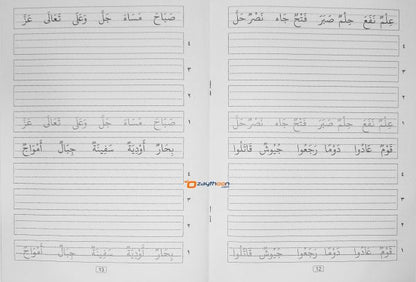 عِلْمٌ نَفَعَ حِلْمٌ صَبَرَ فَتْحٌ جَاءَ نَصْرٌ حَلَّ
٤
٣
٢
١ عِلْمٌ نَفَعَ حِلْمٌ صَبَرَ فَتْحٌ جَاءَ نَصْرٌ حَلَّ
قَوْمٌ عَادُوا دَوْمًا رَجَعُوا جُيُوشٌ قَاتَلُوا
٤
٣
٢
١ قَوْمٌ عَادُوا دَوْمًا رَجَعُوا جُيُوشٌ قَاتَلُوا
صَبَاحَ مَسَاءَ جَلَّ وَعَلَى تَعَالَى عَزَّ
٤
٣
٢
١ صَبَاحَ مَسَاءَ جَلَّ وَعَلَى تَعَالَى عَزَّ
بِحَارٌ أَوْدِيَةٌ سَفِينَةٌ جِبَالٌ أَمْوَاجٌ
٤
٣
٢
١ بِحَارٌ أَوْدِيَةٌ سَفِينَةٌ جِبَالٌ أَمْوَاجٌ
zaythoon